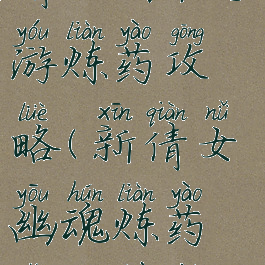 yóu liàn yào gōng
游炼药攻
lüè xīn qiàn nǚ
略(新倩女
yōu hún liàn yào
幽魂炼药